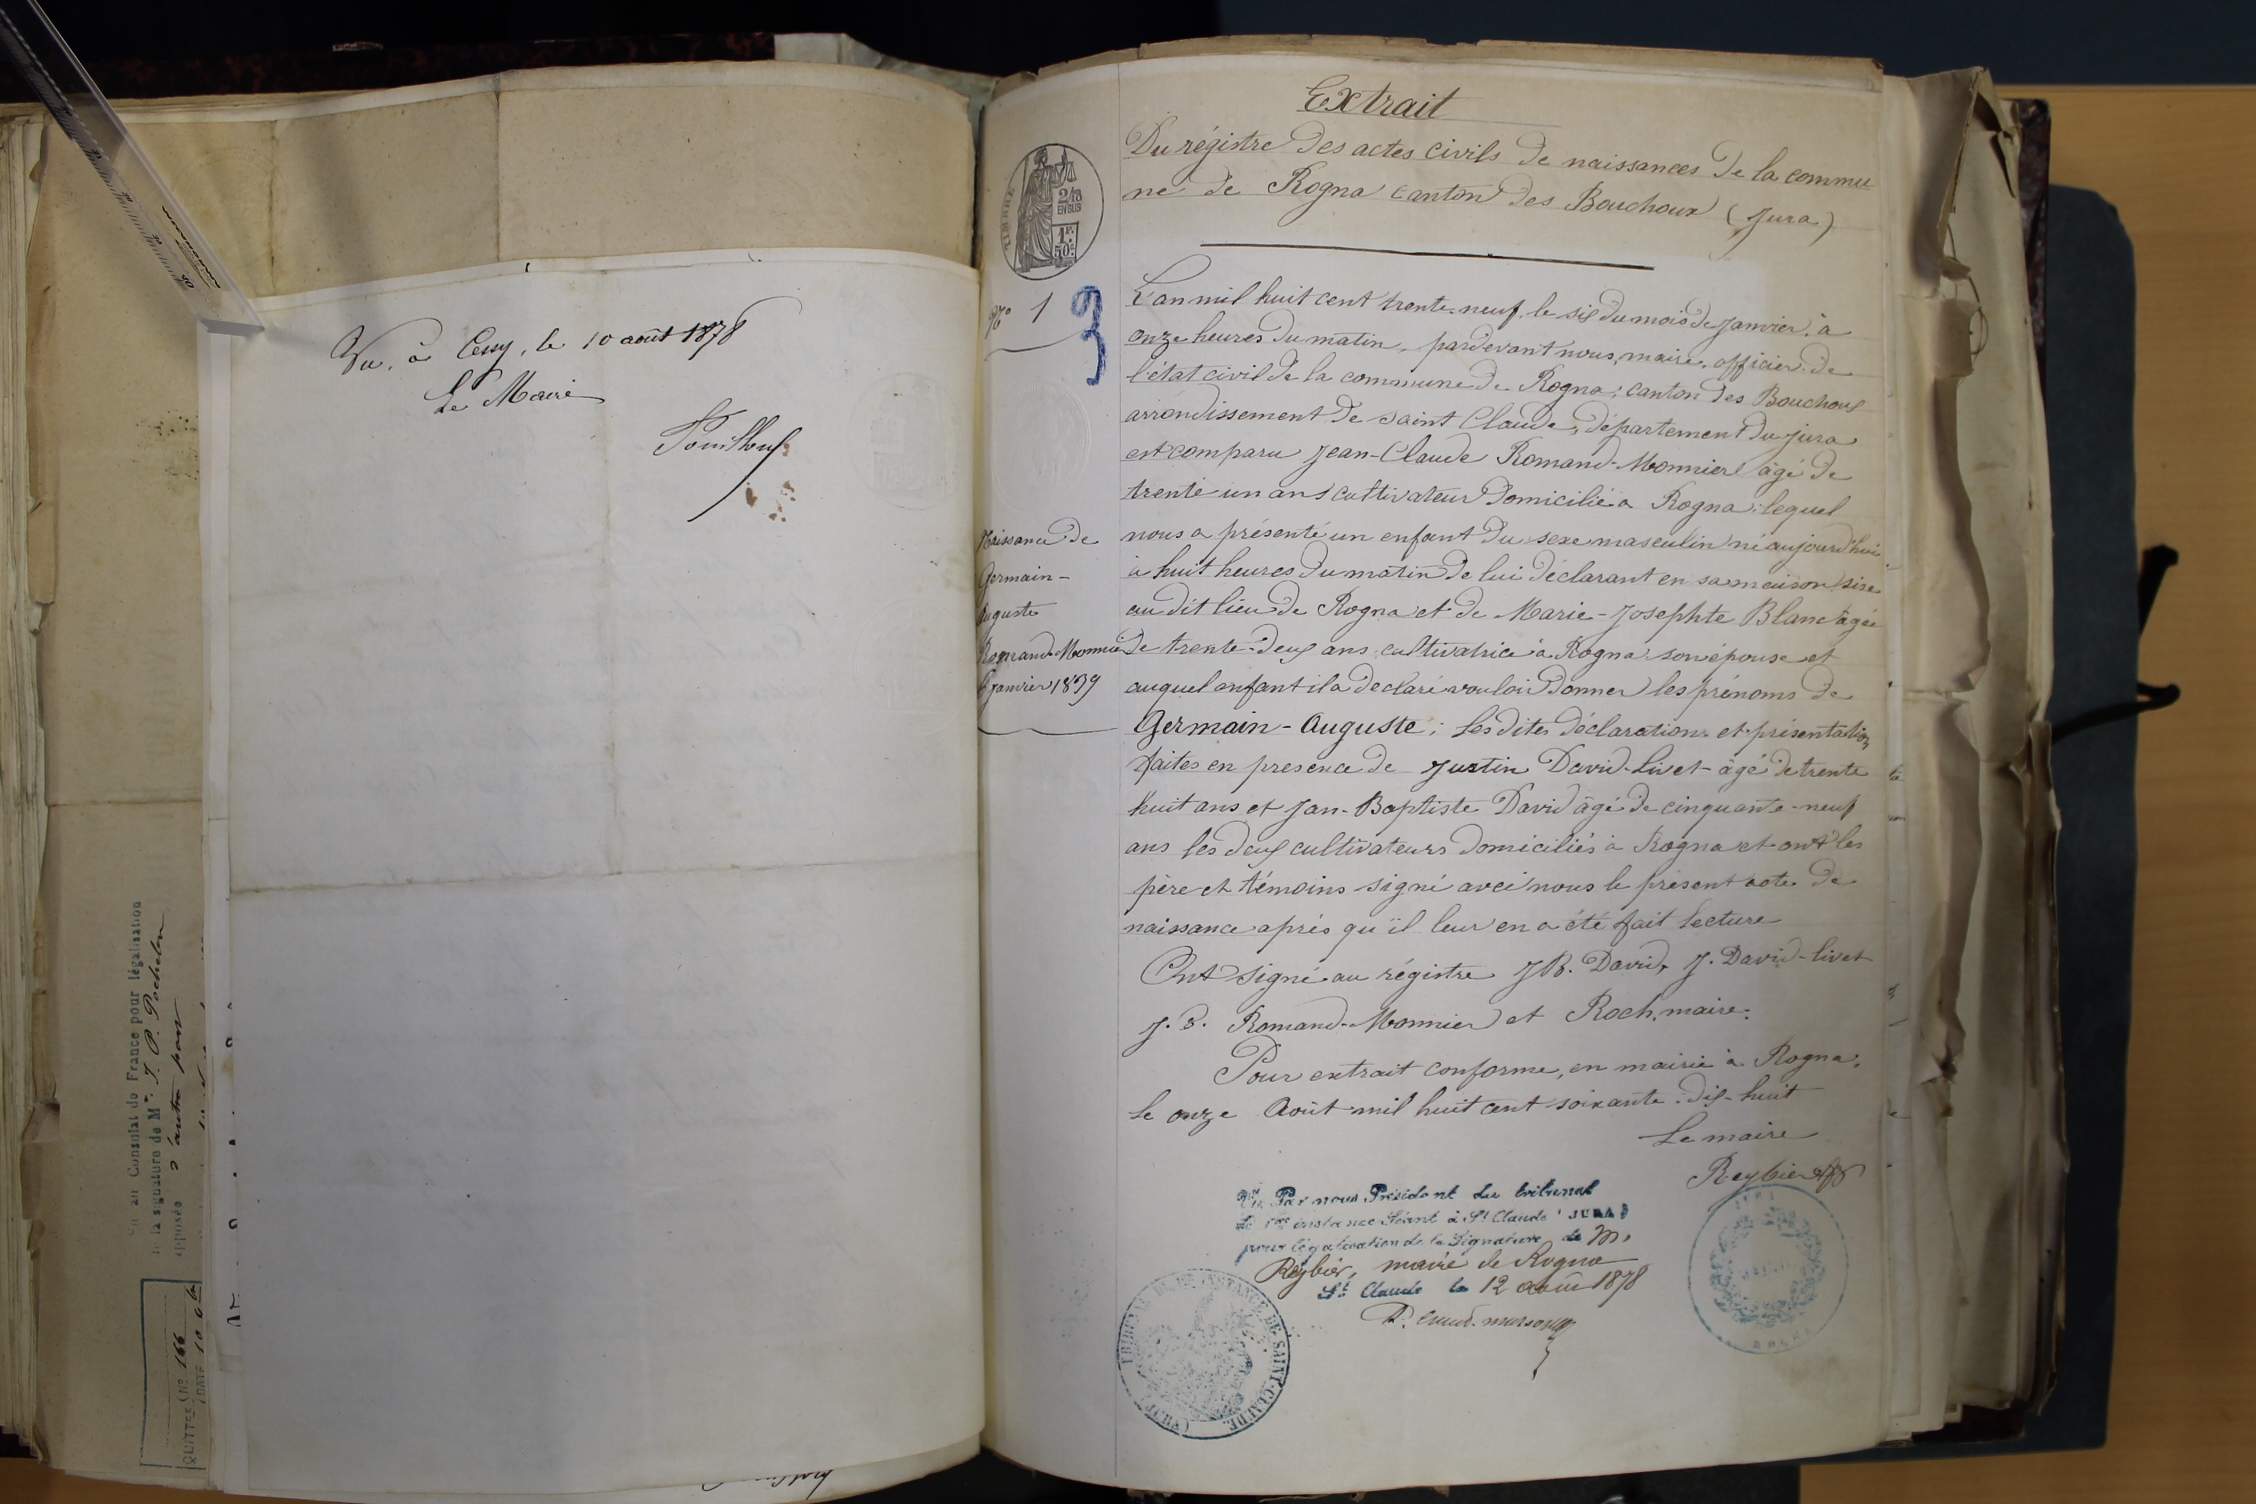 Vu, à Cessy, le 10 août 1878
Le Maire
Vu au Consulat de France pour légalisation
de la signature de Mr. J. P. Pochelon
apposée d'autre part
QUITTCE No 166
DATE 10
Extrait
Du régistre des actes civils de naissances de la commu
ne de Rogna canton des Bouchoux (Jura)
TIMBRE
2/10
EN SUS
1F.
50c
No 1
3
L'an mil huit cent trente-neuf, le six du mois de janvier, à
onze heures du matin, pardevant nous, maire, officier de
l'état civil de la commune de Rogna, canton des Bouchoux
arrondissement de saint Claude, département du jura
est comparu Jean-Claude Romand-Monnier âgé de
trente un ans cultivateur domicilié à Rogna; lequel
Naissance de
Germain-
Auguste
Romand-Monnier
6 janvier 1839
nous a présenté un enfant du sexe masculin né aujourd'hui
à huit heures du matin de lui déclarant en sa maison sise
au dit lieu de Rogna et de Marie-Josephte Blanc âgée
de trente-deux ans cultivatrice à Rogna son épouse et
auquel enfant il a declaré vouloir donner les prénoms de
Germain-Auguste; les dites déclarations et présentation
faites en presence de Justin David-Livet âgé de trente
huit ans et Jan-Baptiste David âgé de cinquante-neuf
ans les deux cultivateurs domiciliés à Rogna et ont les
père et témoins signé avec nous le présent acte de
naissance après qu'il leur en a été fait lecture
Ont signé au régistre J.B. David, J. David-livet
J. C. Romand-Monnier et Roch, maire.
Pour extrait conforme, en mairie à Rogna,
le onze Août mil huit cent soixante-dix-huit
Le maire
Reybier
Vu Par nous Président du tribunal
de 1ère instance Séant à St Claude (JURA)
pour légalisation de la Signature de M.
Reybier, maire de Rogna
St Claude le 12 août 1878
TRIBUNAL DE 1RE INSTANCE DE SAINT-CLAUDE (JURA)